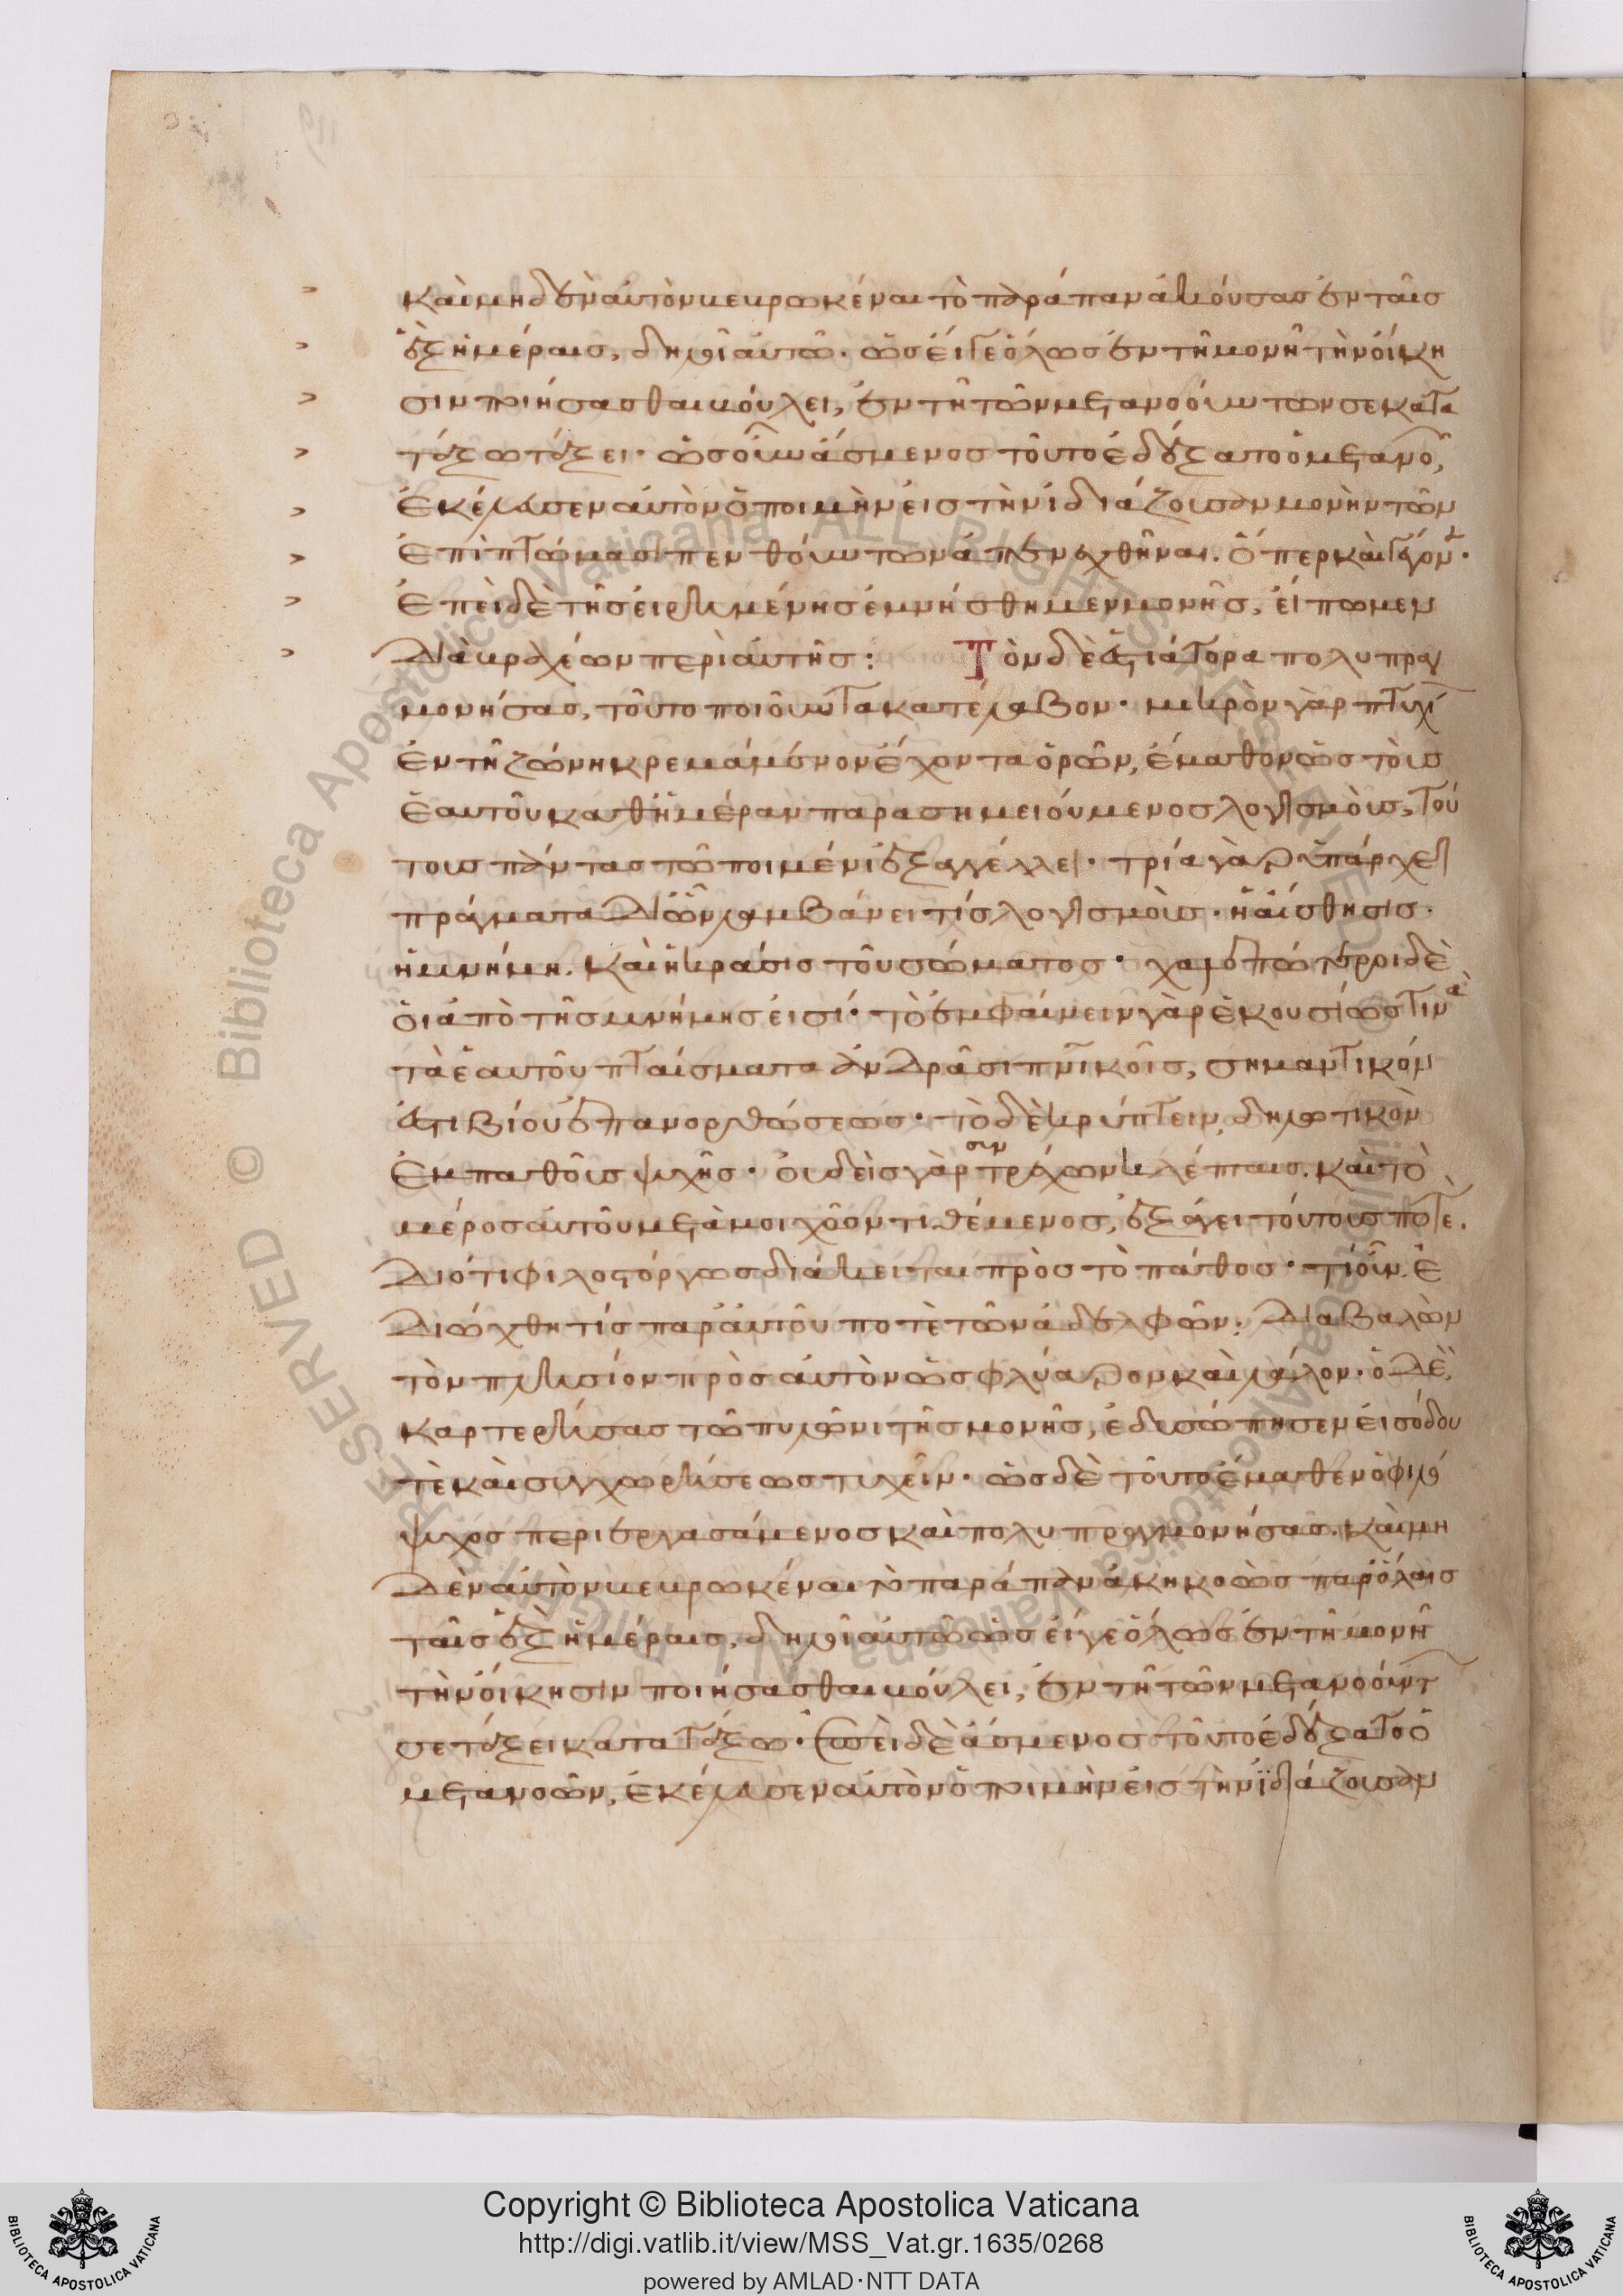 καὶ μηδὲν αὐτὸν πεπρωκέναι τὸ παράπαν ἀκούσας ἐν ταῖς
ἓξ ἡμέραις, δηλοῖ αὐτῷ· ὡς εἴγε ὅλως ἐν τῇ μονῇ τὴν οἴκη
σιν ποιήσασθαι βούλει, ἐν τῇ τῶν μετανοούντων σε κατα
τάξω τάξει· ὡς οὖν ἄσμενος τοῦτο ἐδέξατο ὁ μετανο
ἐκέλευσεν αὐτὸν ὁ ποιμὴν εἰς τὴν ἰδιάζουσαν μονὴν τῶν
ἐπὶ πτώμασι πενθούντων ἀπενεχθῆναι. ὅπερ καὶ γέγον
ἐπεὶ δὲ τῆς εἰρημένης ἐμνήσθημεν μονῆς, εἴπωμεν
διὰ βραχέων περὶ αὐτῆς:
Τὸν δὲ ἑστιάτορα πολυπραγ
μονήσας, τοῦτο ποιοῦντα κατέλαβον· μικρὸν γὰρ πτυχί
ἐν τῇ ζώνῃ κρεμάμενον ἔχοντα ὁρῶν, ἔμαθον ὡς τοὺς
ἑαυτοῦ καθημέραν παρασημειούμενος λογισμοὺς, τού
τους πάντας τῷ ποιμένι ἐξαγγέλλει· τρία γὰρ ὑπάρχει
πράγματα δι' ὧν λαμβάνει τίς λογισμοὺς· ἡ αἴσθησις·
ἡ μνήμη. καὶ ἡ κράσις τοῦ σώματος· χαλεπώτεροι δὲ
οἱ ἀπὸ τῆς μνήμης εἰσί· τὸ ἐμφαίνειν γὰρ ἑκουσίως τινα
τὰ ἑαυτοῦ πταίσματα ἀνδράσι πνικοῖς, σημαντικόν
ἐστι βίου ἐπανορθώσεως· τὸ δὲ κρύπτειν, δηλωτικὸν
ἐμπαθοῦς ψυχῆς· οὐδεὶς γὰρ συντρέχων κλέπταις. καὶ τὸ
μέρος αὐτοῦ μετὰ μοιχῶν τιθέμενος, ἐξάγει τούτους ποτέ.
διότι φιλοστόργως διάκειται πρὸς τὸ πάθος· τί οὖν. ἐ
διώχθη τίς παρ' αὐτοῦ ποτὲ τῶν ἀδελφῶν; διαβαλὼν
τὸν πλησίον πρὸς αὐτὸν ὡς φλύαρον καὶ λάλον· ὁ δὲ,
καρτερήσας τῷ πυλῶνι τῆς μονῆς, ἐδυσώπησεν εἰσόδου
τὲ καὶ συγχωρήσεως τυχεῖν· ὡς δὲ τοῦτο ἔμαθεν ὁ φιλό
ψυχος περιεργασάμενος καὶ πολυπραγμονήσας. καὶ μη
δὲν αὐτὸν πεπρωκέναι τὸ παράπαν ἀκηκοὼς παρ' ὅλαις
ταῖς ἓξ ἡμέραις, δηλοῖ αὐτῷ ὡς εἴγε ὅλως ἐν τῇ μονῇ
τὴν οἴκησιν ποιήσασθαι βούλει, ἐν τῇ τῶν μετανοούντ
σε τάξει κατατάξω· ἐπεὶ δὲ ἄσμενος τοῦτο ἐδέξατο ὁ
μετανοῶν, ἐκέλευσεν αὐτὸν ὁ ποιμὴν εἰς τὴν ἰδιάζουσαν
Copyright © Biblioteca Apostolica Vaticana
http://digi.vatlib.it/view/MSS_Vat.gr.1635/0268
powered by AMLAD·NTT DATA
BIBLIOTECA APOSTOLICA VATICANA
BIBLIOTECA APOSTOLICA VATICANA